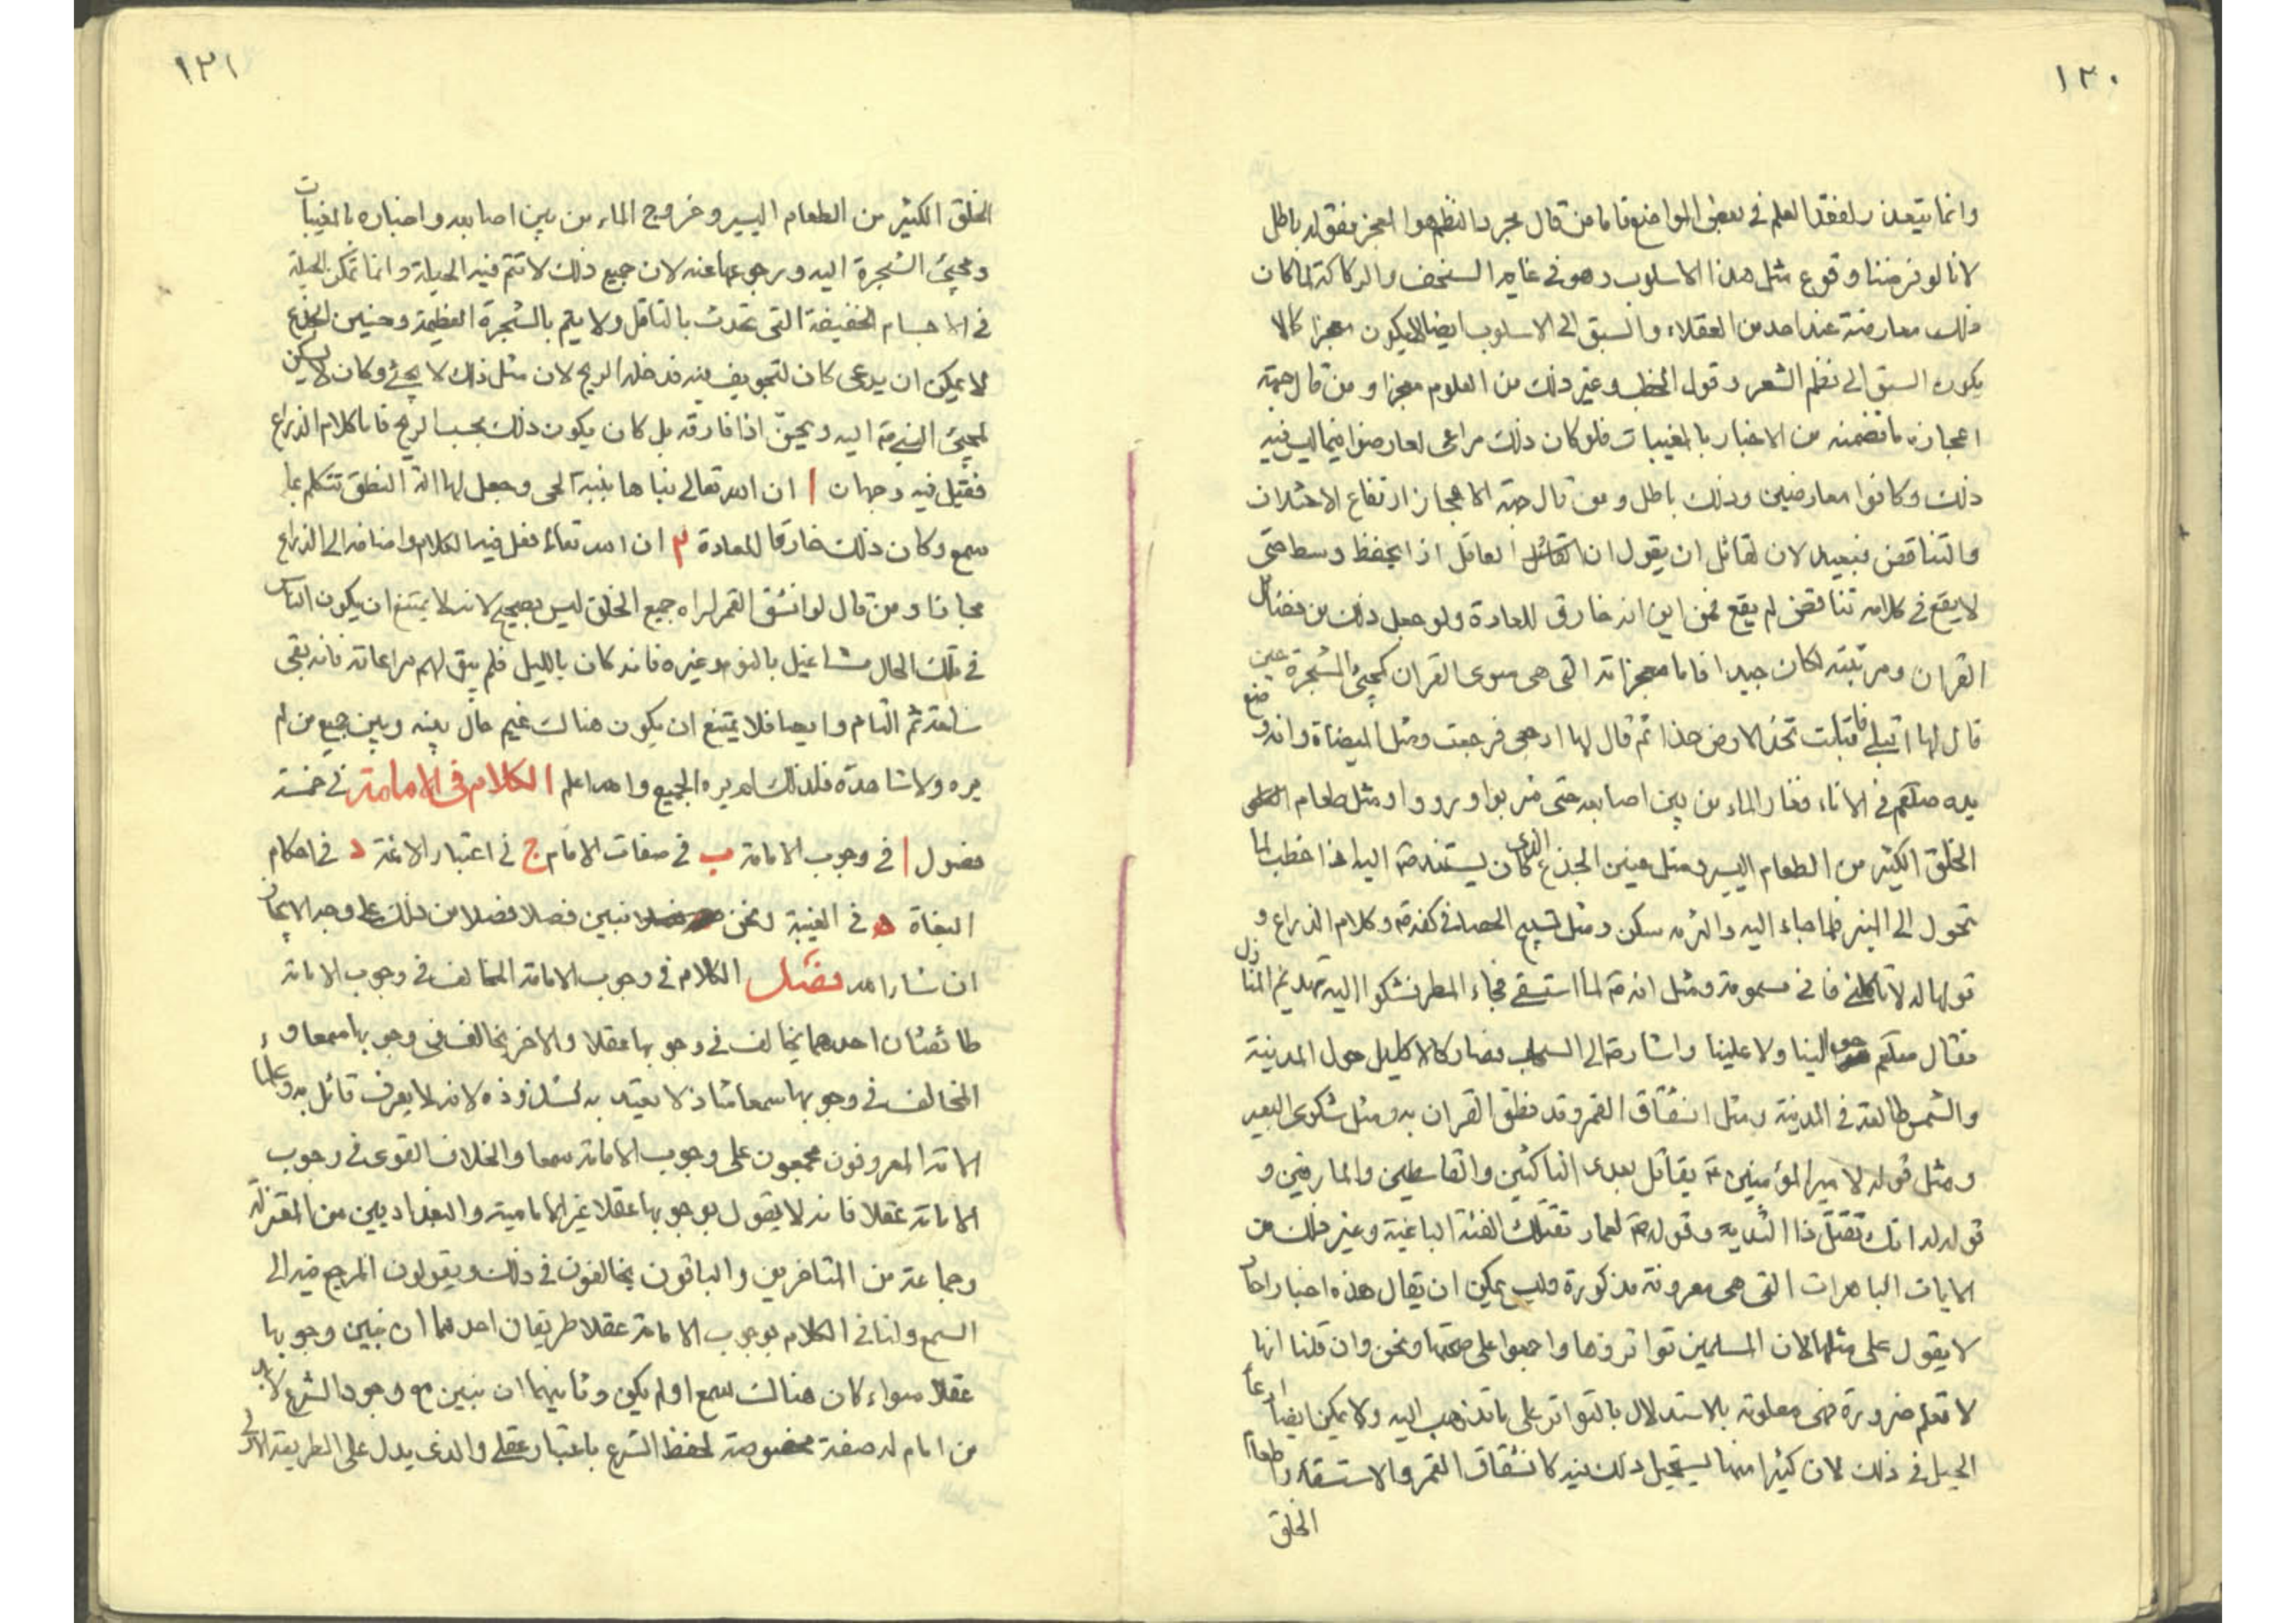 ١٣٠
وانما يتعذر لفقد العلم في بعض المواضع فاما من قال مجرد النظم هو المعجز فقوله باطل
لانا لو فرضنا وقوع مثل هذا الاسلوب وهو في غاية السخف والركاكة لما كان
ذلك معارضة عند احد من العقلاء والسبق الى الاسلوب ايضا لا يكون معجزا كما لا
يكون السبق الى نظم الشعر وقول الخطب وغير ذلك من العلوم معجزا ومن قال جهة
اعجازه ما تضمنه من الاخبار بالمغيبات فلو كان ذلك مراعى لعارضوا فيما ليس فيه
ذلك وكانوا معارضين وذلك باطل ومن قال جهة الاعجاز ارتفاع الاختلاف
والتناقض فبعيد لان لقائل ان يقول ان العاقل اذا تحفظ وسط حتى
لا يقع في كلامه تناقض لم يقع فمن اين انه خارق للعادة ولو جعل ذلك من فضائل
القران ومرتبته لكان جيدا فاما معجزاته التي هي سوى القران كمجيئ الشجرة حين
قال لها اقبلي فاقبلت تخد الارض خدا ثم قال لها ارجعي فرجعت ومثل الميضاة وانه وضع
يده صلعم في الاناء ففار الماء من بين اصابعه حتى شربوا ورووا ومثل طعام
الخلق الكثير من الطعام اليسير ومثل حنين الجذع الذي كان يستند ص اليه اذا خطب لما
تحول الى المنبر فلما جاء اليه والتزمه سكن ومثل تسبيح الحصا في كفه ص وكلام الذراع و
قولها له لا تاكلني فاني مسمومة ومثل انه ص لما استسقى فجاء المطر فشكوا اليه تهدم المنازل
فقال صلعم حوالينا ولا علينا واشار ص الى السحاب فصار كالاكليل حول المدينة
والشمس طالعة في المدينة ومثل انشقاق القمر وقد نطق القران به ومثل شكوى البعير
ومثل قوله لامير المؤمنين ع يقاتل بعدى الناكثين والقاسطين والمارقين و
قوله له انك تقتل ذا الثدية وقوله ص لعمار تقتلك الفئة الباغية وغير ذلك من
الايات الباهرات التي هي معروفة مذكورة وليس يمكن ان يقال هذه اخبار احاد
لا يقول على مثلها لان المسلمين تواتروها واجمعوا على صحتها ونحن وان قلنا انها
لا تعلم ضرورة فهي معلومة بالاستدلال بالتواتر على ما نذهب اليه ولا يمكن ايضا ادعاء
الحيل في ذلك لان كثيرا منها يستحيل ذلك فيه كانشقاق القمر والاستسقاء واطعام
الخلق
١٣١
الخلق الكثير من الطعام اليسير وخروج الماء من بين اصابعه واخباره بالمغيبات
ومجيئ الشجرة اليه ورجوعها عنه لان جميع ذلك لا تتم فيه الحيلة وانما تمكن الحيلة
في الاجسام الخفيفة التي تحدث بالتاقل ولا يتم بالشجرة العظيمة وحنين الجذع
لا يمكن ان يدعى كان لتجويف فيه فدخله الريح لان مثل ذلك لا يخفى وكان لا يسكن
لمجيئ النبي ص اليه ويحن اذا فارقه بل كان يكون ذلك بحسب الريح فاما كلام الذراع
فقيل فيه وجهان ا ان الله تعالى بناها بنية الحي وجعل لها الة النطق تتكلم بما
سمع وكان ذلك خارقا للعادة ٢ ان الله تعالى فعل فيه الكلام واضافه الى الذراع
مجازا ومن قال لو انشق القمر لراه جميع الخلق ليس بصحيح لانه لا يمتنع ان يكون الناس
في تلك الحال مشاغيل بالنوم وغيره فانه كان بالليل فلم يبق لهم مراعاته فانه بقى
ساعة ثم التام وايضا فلا يمتنع ان يكون هنالك غيم حال بينه وبين جميع من لم
يره ولا شاهده فلذلك لم يره الجميع والله اعلم الكلام في الامامة في خمسة
فصول ا في وجوب الامامة ب في صفات الامام ج في اعتبار الائمة د في احكام
البغاة ه في الغيبة ونحن نبين فصلا فصلا من ذلك على وجه الايجاز
ان شاء الله فصل الكلام في وجوب الامامة المخالف في وجوب الامامة
طائفتان احدهما يخالف في وجوبها عقلا والاخر يخالف في وجوبها سمعا و
المخالف في وجوبها سمعا شاذ لا يعتد به لشذوذه لانه لا يعرف قائل به وعلماء
الامة المعروفون مجمعون على وجوب الامامة سمعا والخلاف القوى في وجوب
الامامة عقلا فانه لا يقول بوجوبها عقلا غير الامامية والبغداديين من المعتزلة
وجماعة من المتاخرين والباقون يخالفون في ذلك ويقولون المرجع فيه الى
السمع ولنا في الكلام بوجوب الامامة عقلا طريقان احدهما ان نبين وجوبها
عقلا سواء كان هنالك سمع او لم يكن وثانيهما ان نبين مع وجود الشرع لا بد
من امام له صفة مخصوصة لحفظ الشرع باعتبار عقلي والذي يدل على الطريقة الاولى